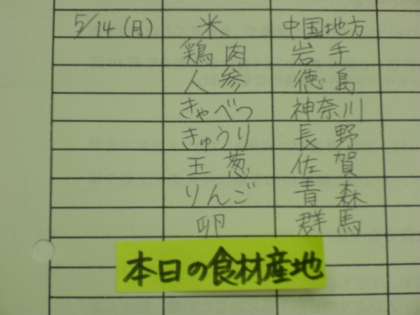 5/14(月) 米 中国地方
鶏肉 岩手
人参 徳島
きゃべつ 神奈川
きゅうり 長野
玉葱 佐賀
りんご 青森
卵 群馬
本日の食材産地